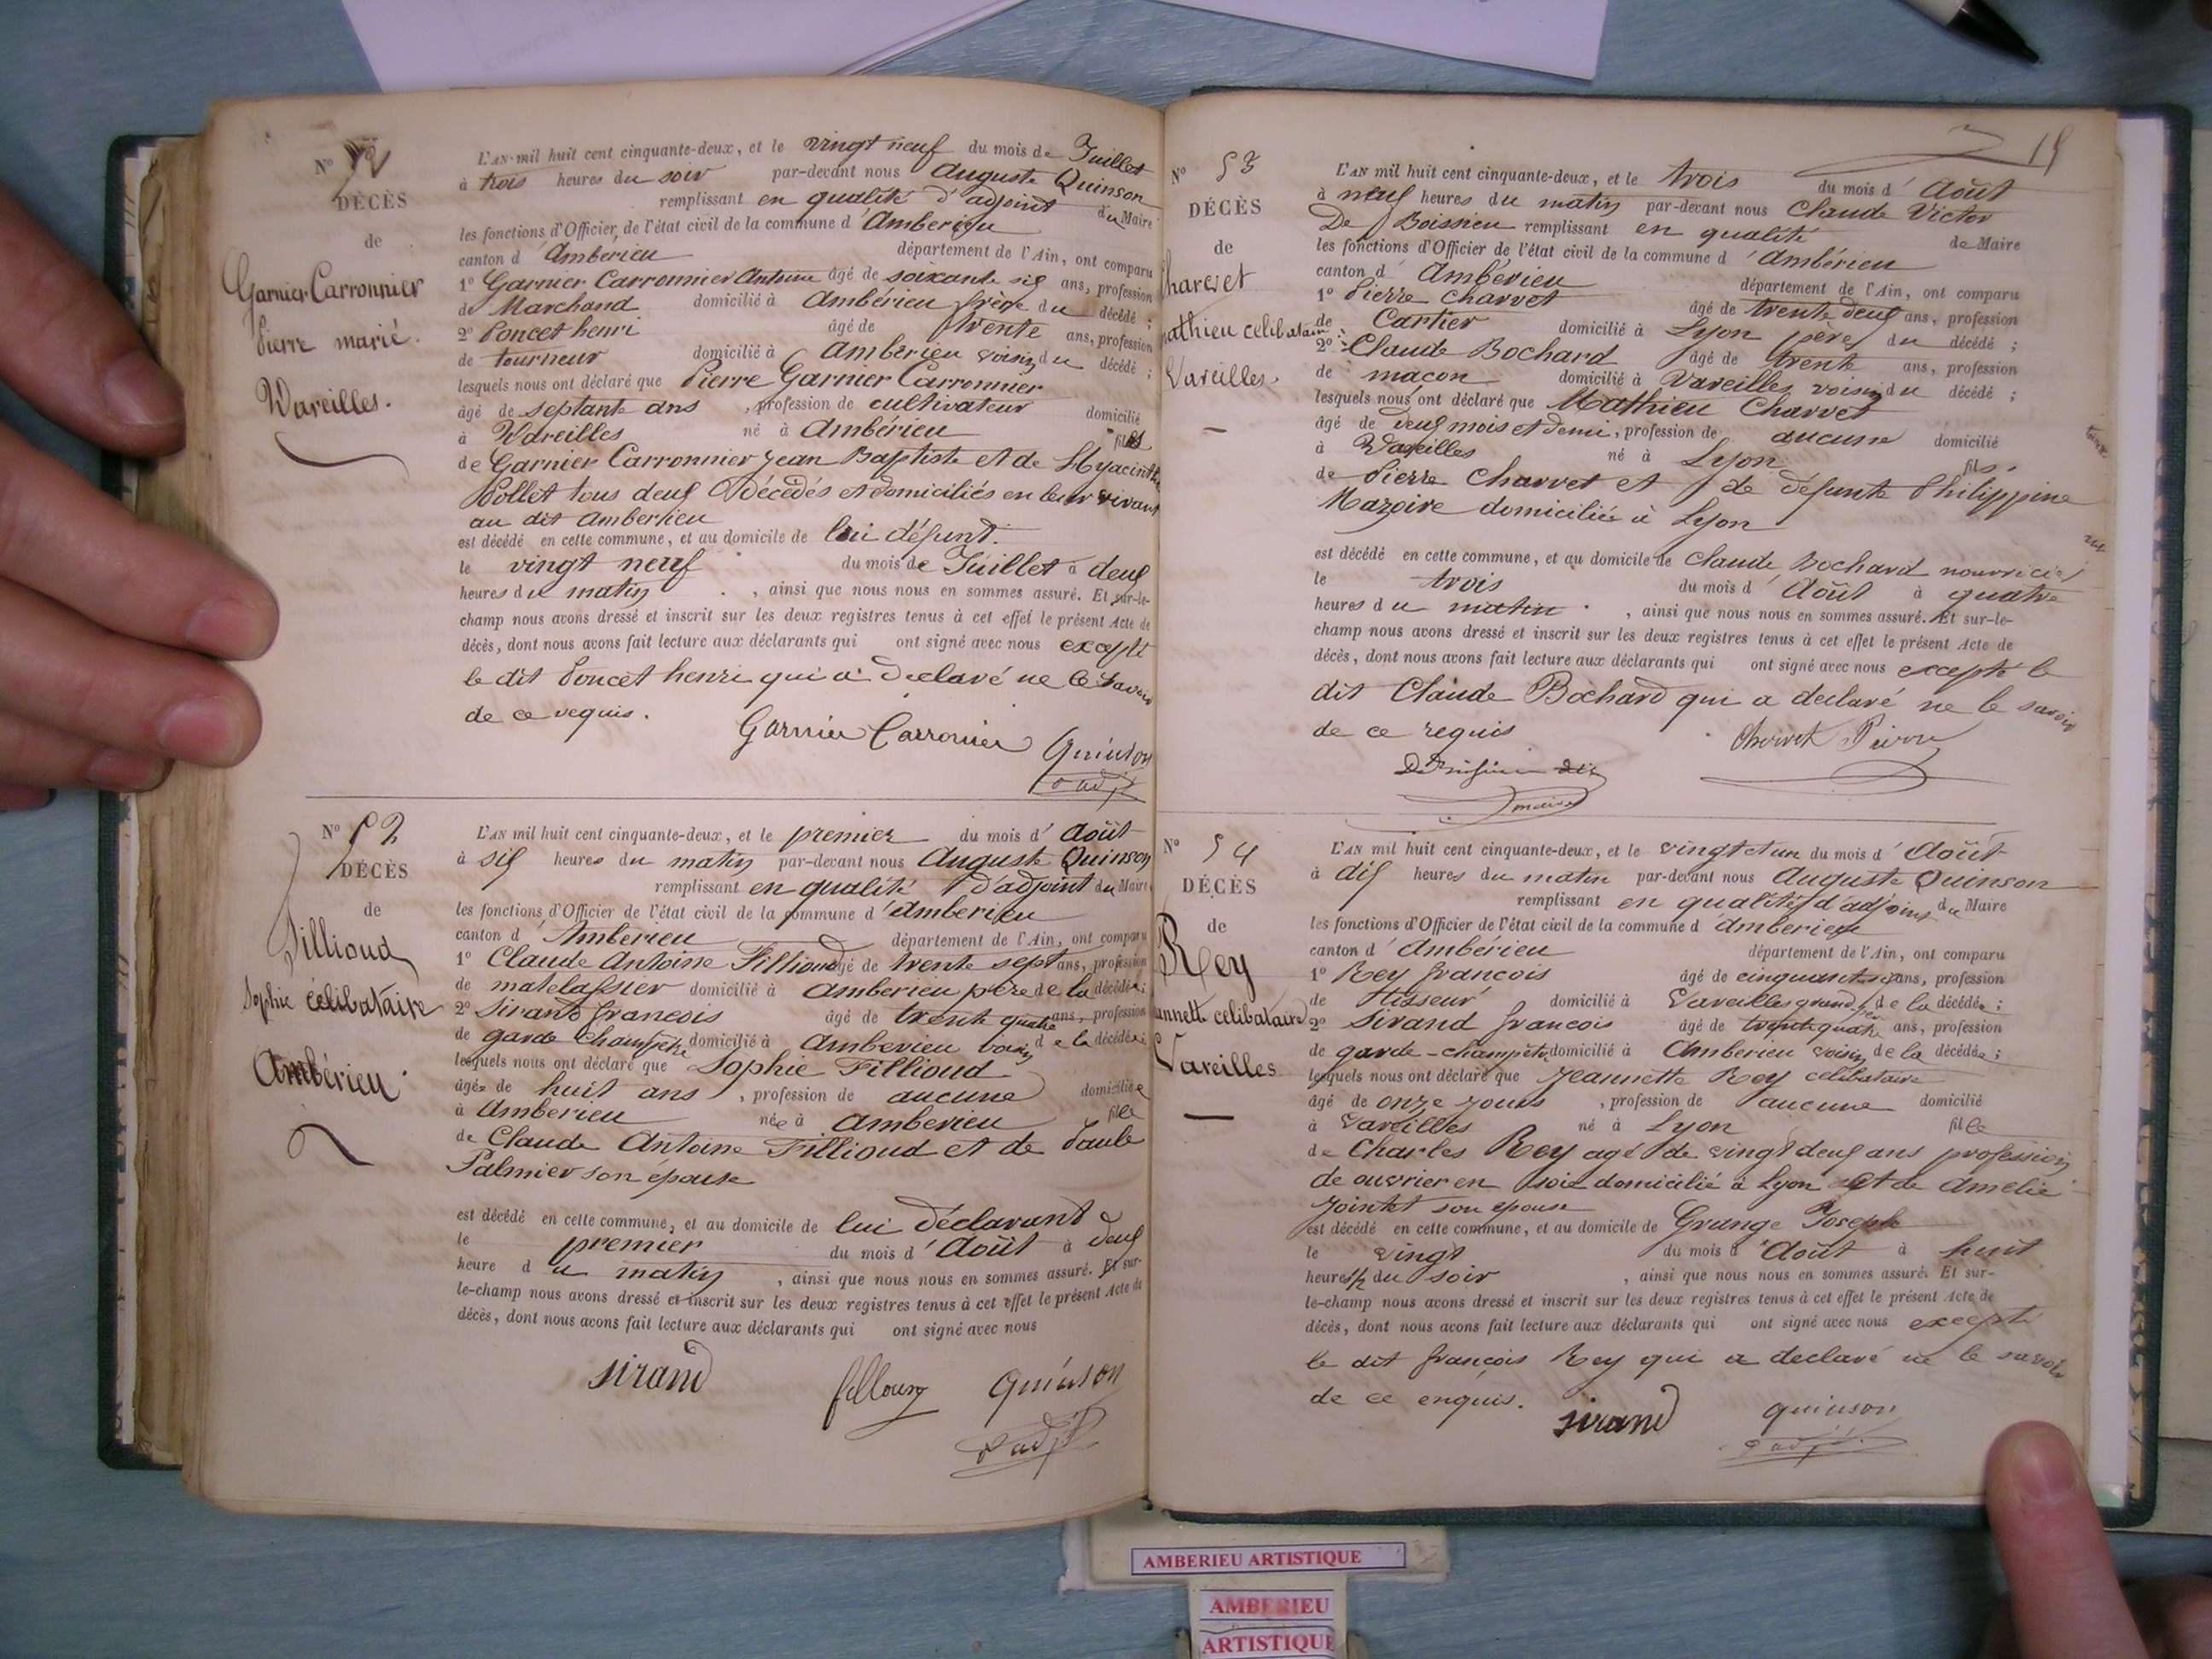 N°
DÉCÈS
de
Garnier Carronnier
Pierre marié.
Vareilles.
L'AN mil huit cent cinquante-deux, et le vingt neuf du mois de Juillet
à trois heures du soir par-devant nous Auguste Quinson
remplissant en qualité d'adjoint du Maire
les fonctions d'Officier de l'état civil de la commune d'Ambérieu
canton d'Ambérieu département de l'Ain, ont comparu
1° Garnier Carronnier Antoine âgé de soixante six ans, profession
de Marchand domicilié à Ambérieu frère du décédé ;
2° Poncet henri âgé de trente ans, profession
de tourneur domicilié à Ambérieu voisin du décédé ;
lesquels nous ont déclaré que Pierre Garnier Carronnier
âgé de septante ans , profession de cultivateur domicilié
à Vareilles né à Ambérieu fils
de Garnier Carronnier Jean Baptiste et de Hyacinthe
Pollet tous deux décédés et domiciliés en leur vivant
au dit Amberieu
est décédé en cette commune, et au domicile de lui défunt.
le vingt neuf du mois de Juillet à deux
heures du matin , ainsi que nous nous en sommes assuré. Et sur-le-
champ nous avons dressé et inscrit sur les deux registres tenus à cet effet le présent Acte de
décès, dont nous avons fait lecture aux déclarants qui ont signé avec nous excepté
le dit Poncet henri qui a declaré ne le savoir
de ce requis.
Garnier Carronier Quinson
adjt
N° 52
DÉCÈS
de
Fillioud
Sophie célibataire
Ambérieu
L'AN mil huit cent cinquante-deux, et le premier du mois d'Août
à six heures du matin par-devant nous Auguste Quinson
remplissant en qualité d'adjoint du Maire
les fonctions d'Officier de l'état civil de la commune d'Amberieu
canton d'Ambérieu département de l'Ain, ont comparu
1° Claude Antoine Fillioud âgé de trente sept ans, profession
de matelassier domicilié à Amberieu père de la décédée ;
2° Sirand francois âgé de trente quatre ans, profession
de garde champêtre domicilié à Amberieu voisin de la décédée ;
lesquels nous ont déclaré que Sophie Fillioud
âgée de huit ans , profession de aucune domiciliée
à Amberieu née à Amberieu fille
de Claude Antoine Fillioud et de Paule
Palmier son épouse
est décédé en cette commune, et au domicile de lui déclarant
le premier du mois d'Août à deux
heure du matin , ainsi que nous nous en sommes assuré. Et sur-
le-champ nous avons dressé et inscrit sur les deux registres tenus à cet effet le présent Acte de
décès, dont nous avons fait lecture aux déclarants qui ont signé avec nous
Sirand Quinson
adjt
N° 53
DÉCÈS
de
Charvet
athieu celibataire
Vareilles.
L'AN mil huit cent cinquante-deux, et le trois du mois d'Août
à neuf heures du matin par-devant nous Claude Victor
De Boissieu remplissant en qualité de Maire
les fonctions d'Officier de l'état civil de la commune d'Ambérieu
canton d'Ambérieu département de l'Ain, ont comparu
1° Pierre Charvet âgé de trente deux ans, profession
de Cartier domicilié à Lyon père du décédé ;
2° Claude Bochard âgé de trente ans, profession
de macon domicilié à Vareilles voisin du décédé ;
lesquels nous ont déclaré que Mathieu Charvet
âgé de deux mois et demi, profession de aucune domicilié
à Vareilles né à Lyon fils
de Pierre Charvet et de défunte Philippine
Mazoire domiciliés à Lyon
est décédé en cette commune, et au domicile de Claude Bochard nourricier
le trois du mois d'Août à quatre
heures du matin , ainsi que nous nous en sommes assuré. Et sur-le-
champ nous avons dressé et inscrit sur les deux registres tenus à cet effet le présent Acte de
décès, dont nous avons fait lecture aux déclarants qui ont signé avec nous excepté le
dit Claude Bochard qui a declaré ne le savoir
de ce requis
maire
N° 54
DÉCÈS
de
Rey
annette celibataire
Vareilles
L'AN mil huit cent cinquante-deux, et le vingt et un du mois d'Août
à dix heures du matin par-devant nous Auguste Quinson
remplissant en qualité d'adjoint du Maire
les fonctions d'Officier de l'état civil de la commune d'amberieu
canton d'Ambérieu département de l'Ain, ont comparu
1° Rey françois âgé de cinquante six ans, profession
de tisseur domicilié à Vareilles grand père de la décédée ;
2° Sirand francois âgé de trente quatre ans, profession
de garde-champêtre domicilié à Amberieu voisin de la décédée ;
lesquels nous ont déclaré que Jeannette Rey celibataire
âgé de onze jours , profession de aucune domicilié
à Vareilles né à Lyon fille
de Charles Rey agé de vingt deux ans profession
de ouvrier en soie domicilié à Lyon et de Amelie
Jointet son epouse
est décédé en cette commune, et au domicile de Grange Joseph
le vingt du mois d'Août à huit
heures ½ du soir , ainsi que nous nous en sommes assuré. Et sur-
le-champ nous avons dressé et inscrit sur les deux registres tenus à cet effet le présent Acte de
décès, dont nous avons fait lecture aux déclarants qui ont signé avec nous excepté
le dit françois Rey qui a declaré ne le savoir
de ce enquis.
Sirand Quinson
adjt
AMBERIEU ARTISTIQUE
AMBERIEU
ARTISTIQUE